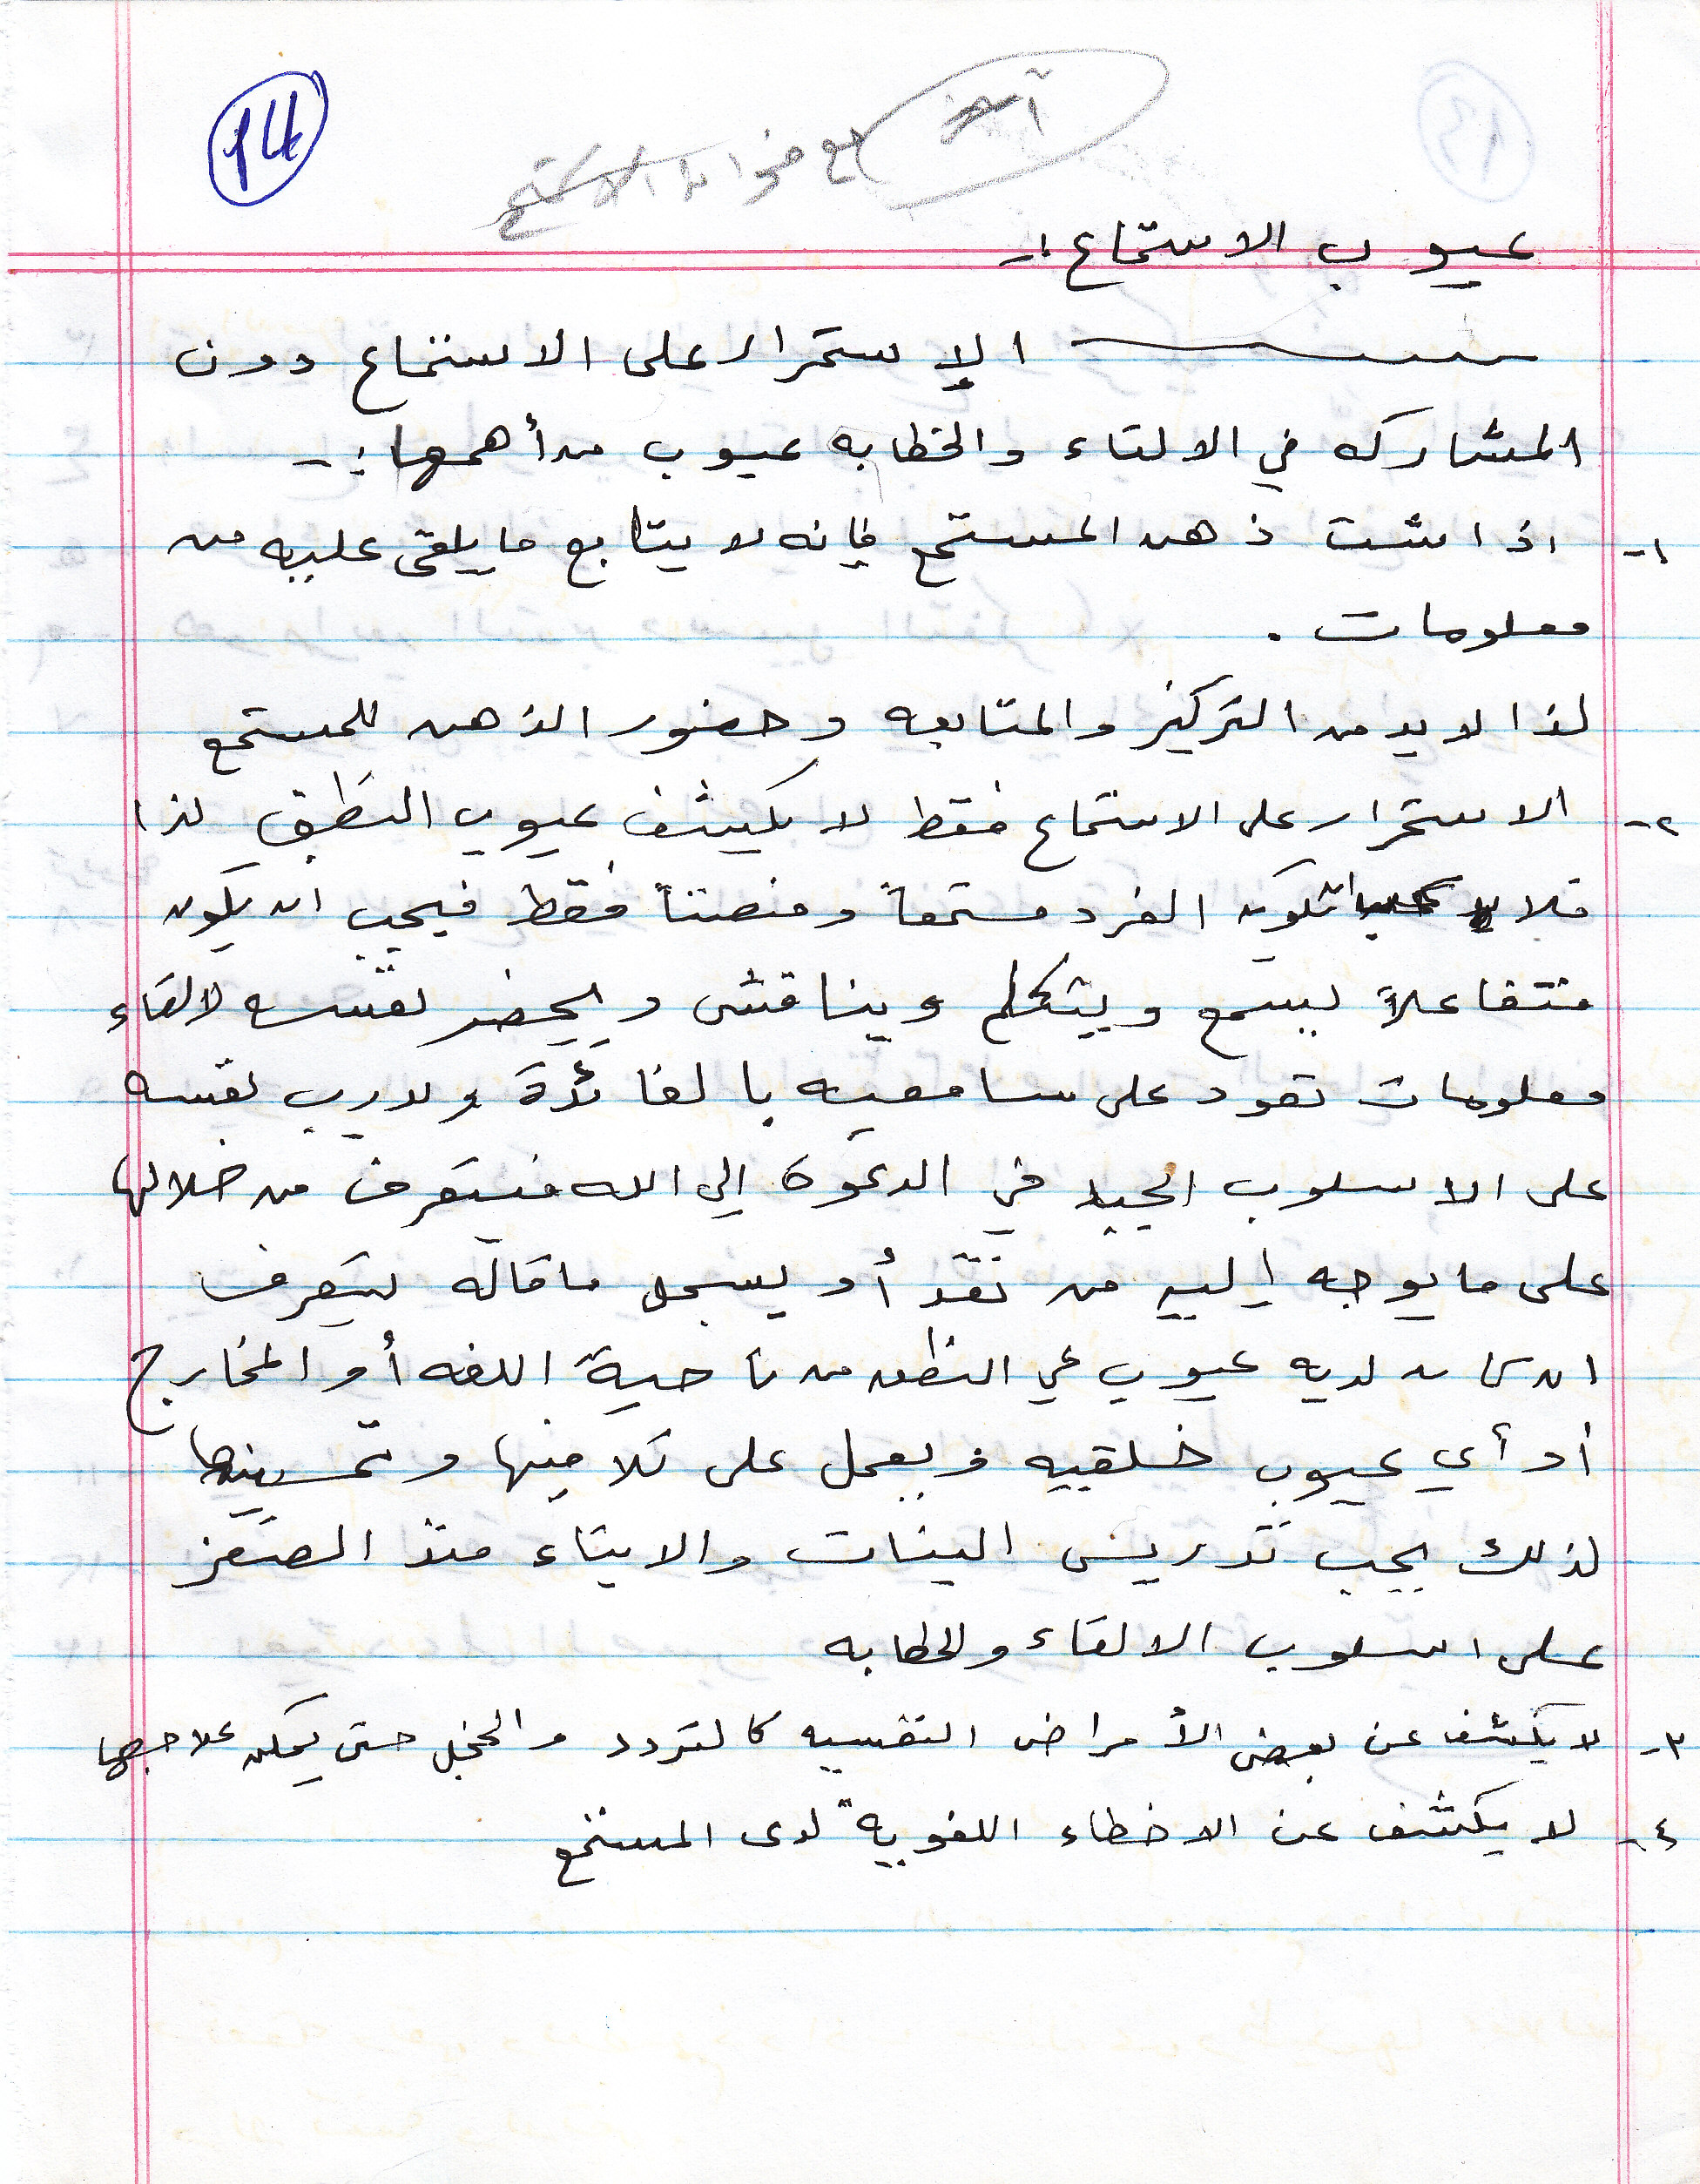 14
عيوب الاستماع :-
الإستمرار على الاستماع دون
المشاركه في الالقاء والخطابه عيوب من أهمها :-
١- اذا شت ذهن المستمع فإنه لا يتابع ما يلقى عليه من
معلومات .
لذا لابد من التركيز والمتابعه وحضور الذهن للمستمع
٢- الاستمرار على الاستماع فقط لا يكشف عيوب النطق لذا
فلا يكون الفرد مستمعاً ومنصتاً فقط فيجب ان يكون
متفاعلاً يسمع ويتكلم ويناقش ويحضر نفسه لالقاء
معلومات تعود على سامعيه بالفائدة ويدرب نفسه
على الاسلوب الجيد في الدعوة إلى الله فيتعرف من خلالها
على ما يوجه إليه من نقد أو يسجل ما قاله ليتعرف
ان كان لديه عيوب في النطق من ناحية اللغه أو المخارج
أو أي عيوب خلقيه فيعمل على تلافيها وتحسينها
لذلك يجب تدريس البنات والابناء منذ الصغر
على اسلوب الالقاء والخطابه
٣- لا يكشف عن بعض الأمراض النفسيه كالتردد والخجل حتى يمكن علاجها
٤- لا يكشف عن الاخطاء اللغوية لدى المستمع